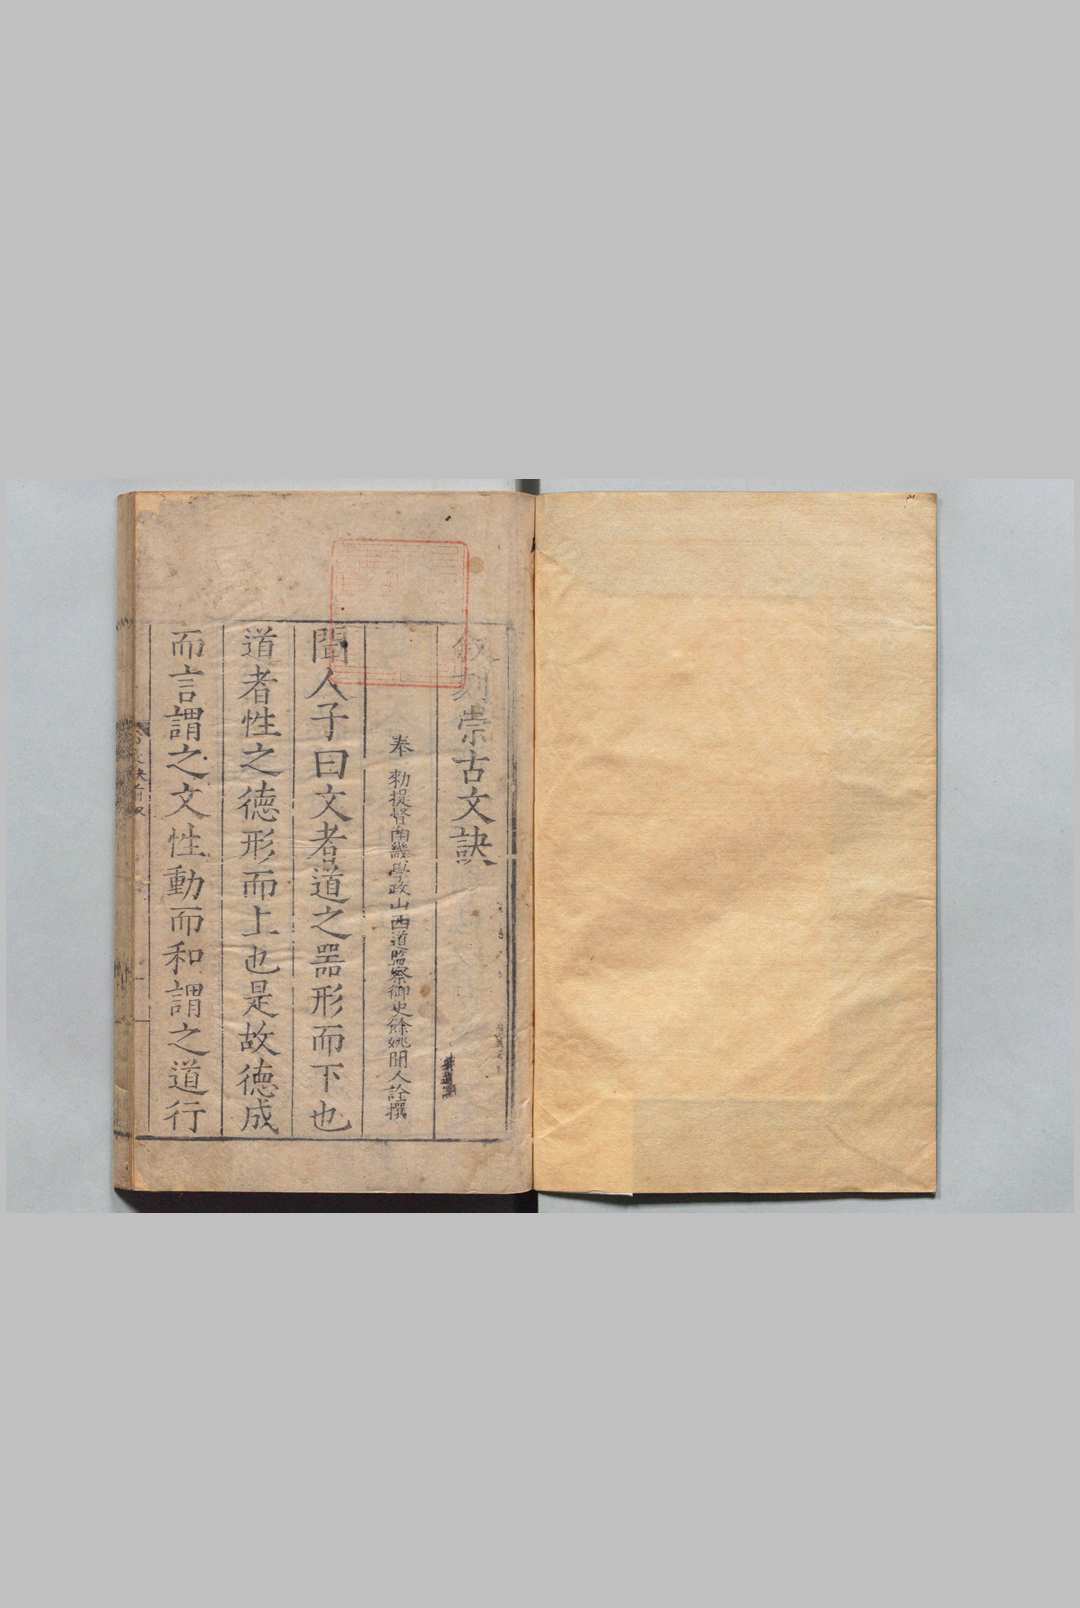 敘刻崇古文訣
奉 勑提督南畿學政山西道監察御史餘姚聞人詮撰
聞人子曰文者道之器形而下也
道者性之德形而上也是故德成
而言謂之文性動而和謂之道行